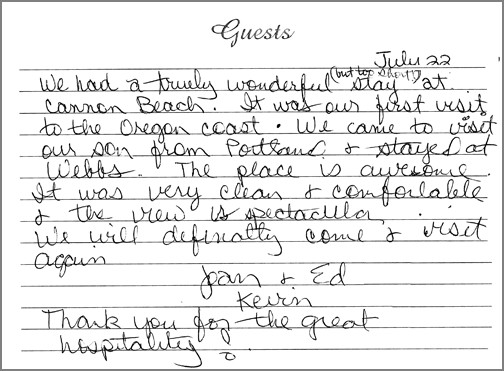 Guests
July 22
We had a truely wonderful (but too short!) stay at
Cannon Beach. It was our first visit
to the Oregon coast. We came to visit
our son from Portland & stayed at
Webbs. The place is awesome.
It was very clean & comforlable
& the view is spectacular.
We will definatly come & visit
again
Joan & Ed
Kevin
Thank you for the great
hospitality